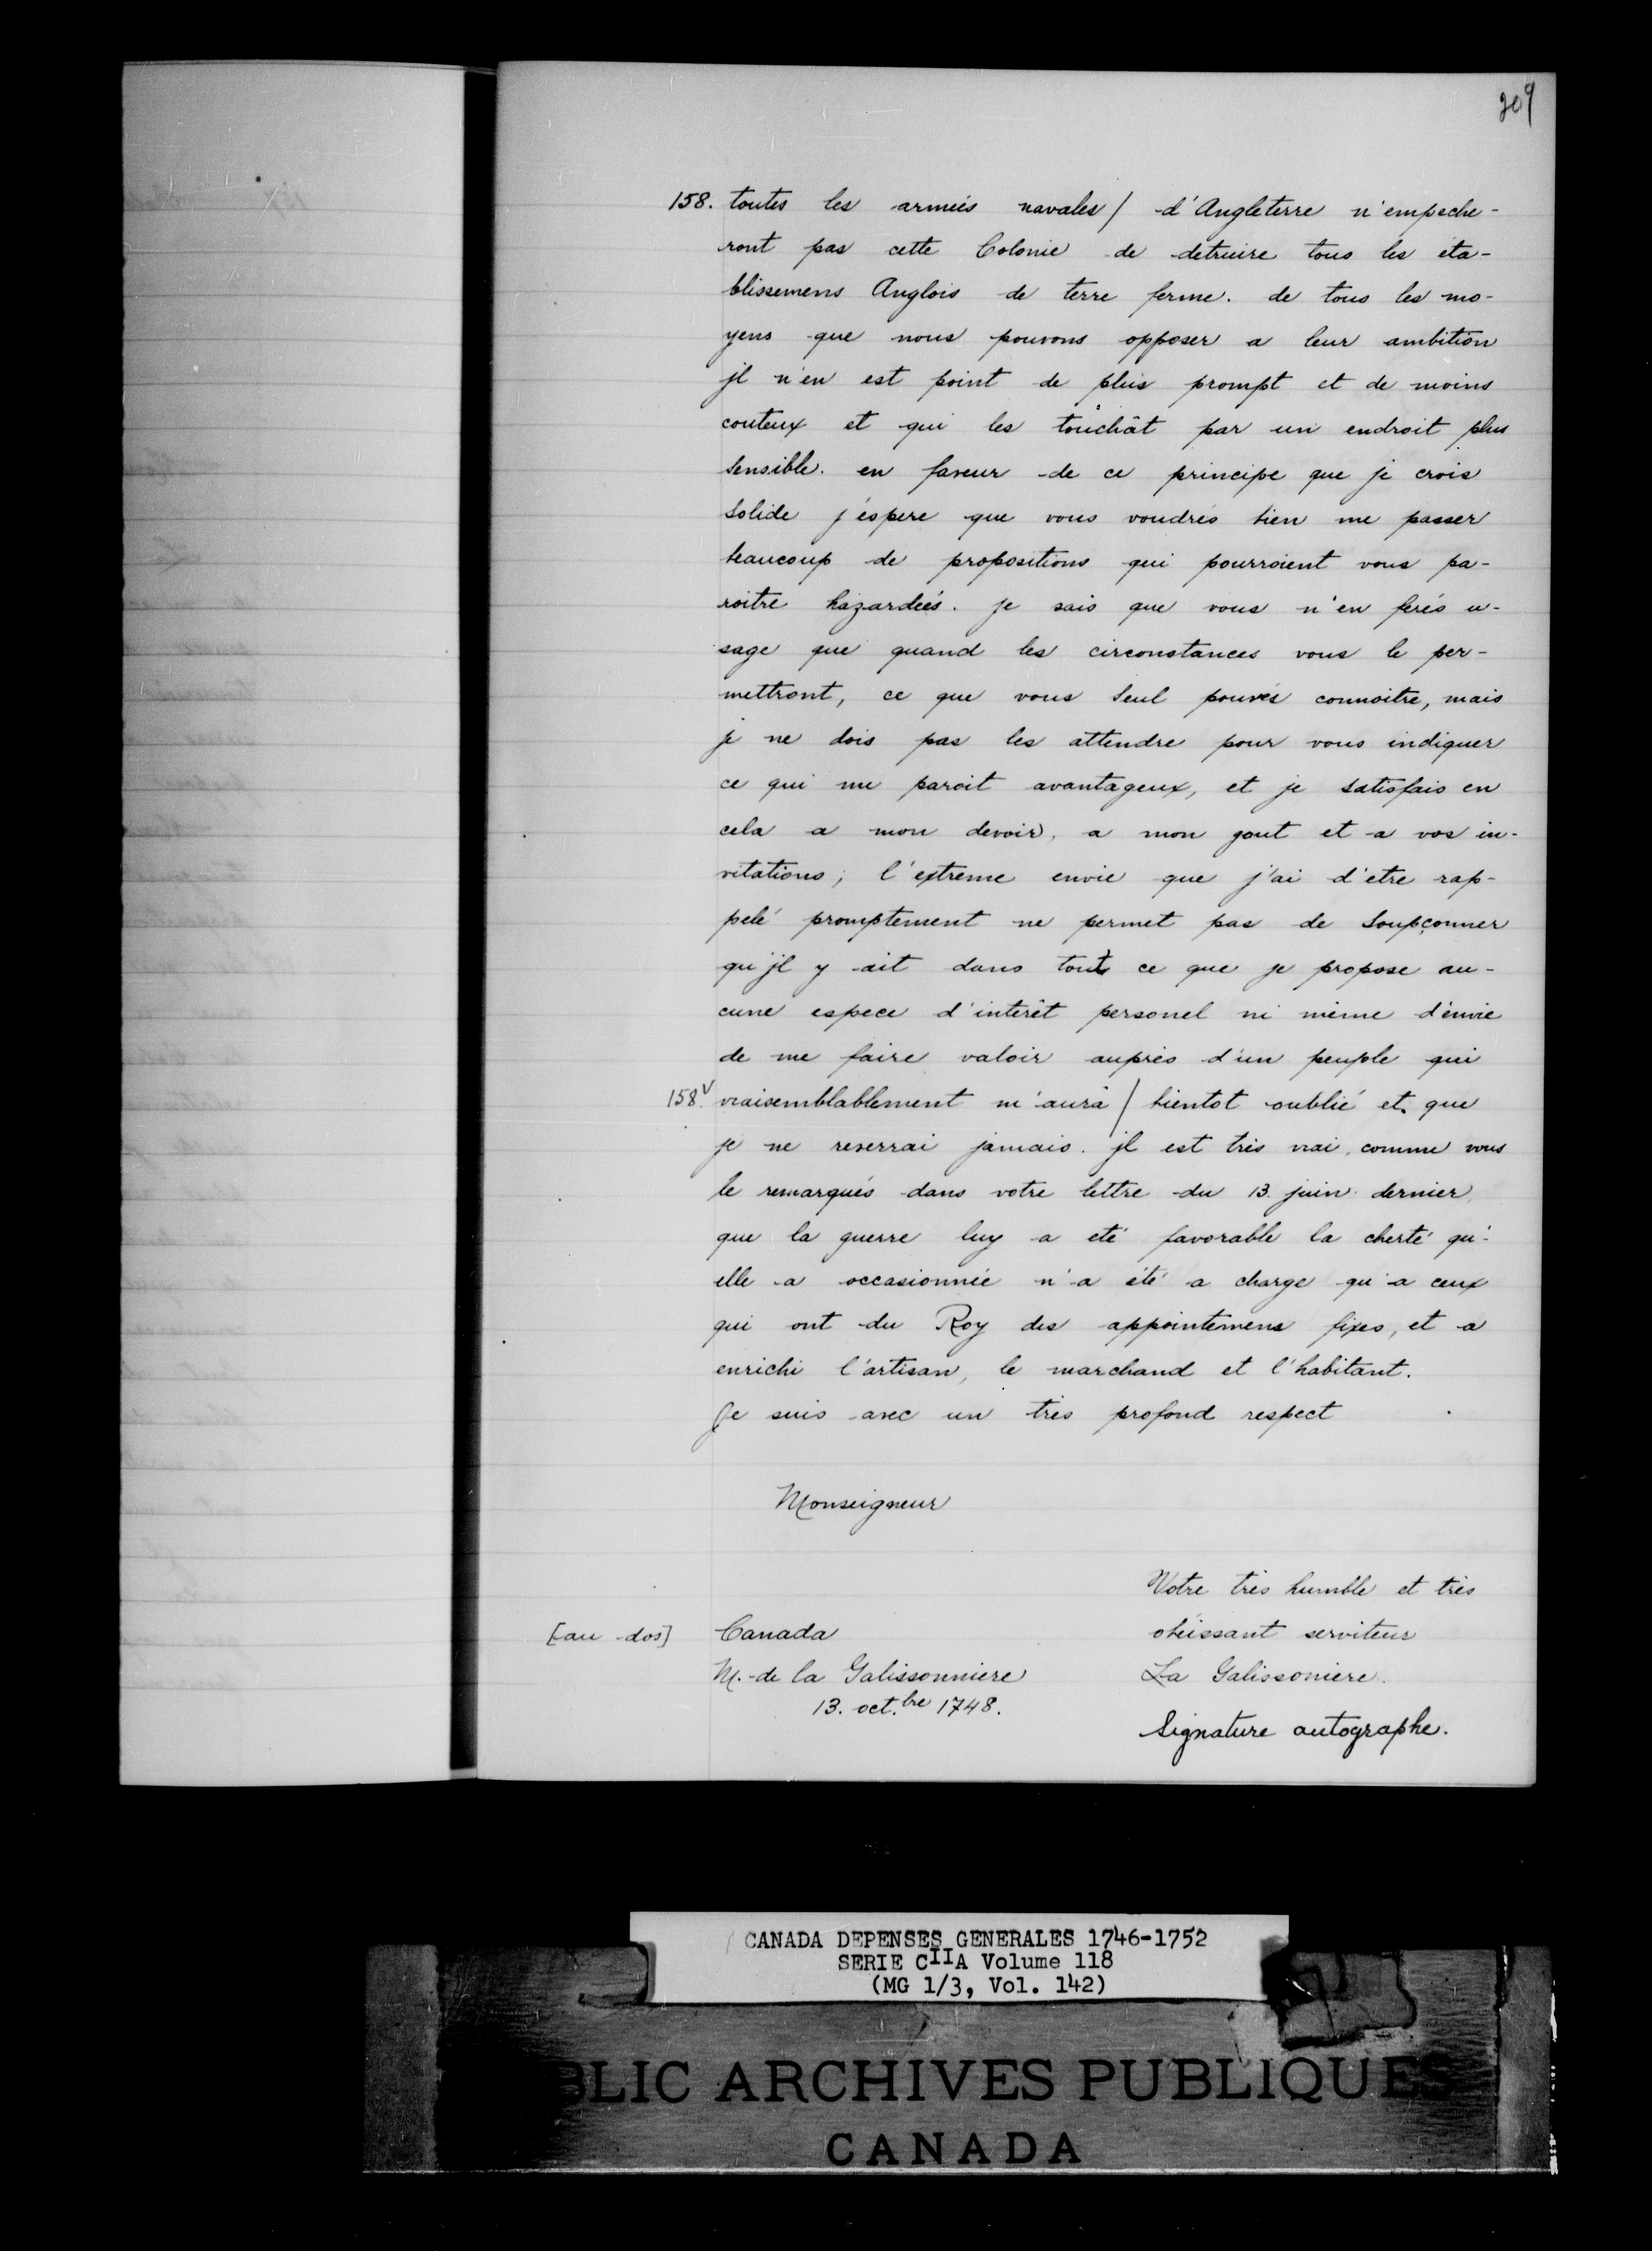 209
158. toutes les armées navales / d'Angleterre n'empeche-
ront pas cette Colonie de detruire tous les eta-
blissemens Anglois de terre ferme. de tous les mo-
yens que nous pouvons opposer a leur ambition
jl n'en est point de plus prompt et de moins
couteux et qui les touchât par un endroit plus
sensible. en faveur de ce principe que je crois
solide j'éspere que vous voudrés bien me passer
beaucoup de propositions qui pourroient vous pa-
roitre hazardeés. je sais que vous n'en ferés u-
sage que quand les circonstances vous le per-
mettront, ce que vous seul pouvés connoitre, mais
je ne dois pas les attendre pour vous indiquer
ce qui me paroit avantageux, et je satisfais en
cela a mon devoir, a mon gout et a vos in-
vitations; l'extreme envie que j'ai d'etre rap-
pelé promptement ne permet pas de soupçonner
qu'jl y ait dans tout ce que je propose au-
cune espece d'intérêt personel ni même d'envie
de me faire valoir auprès d'un peuple qui
158v. vraisemblablement m'aura / bientot oublié et que
je ne reverrai jamais. jl est très vrai, comme vous
le remarqués dans votre lettre du 13. juin dernier,
que la guerre luy a eté favorable la cherté qu'-
elle a occasionnée n'a été a charge qu'a ceux
qui ont du Roy des appointemens fixes, et a
enrichi l'artisan, le marchand et l'habitant.
Je suis avec un très profond respect
Monseigneur
Votre très humble et très
obéissant serviteur
La Galissoniere.
Signature autographe.
[au dos] Canada
M. de la Galissonniere
13. oct.bre 1748.
CANADA DEPENSES GENERALES 1746-1752
SERIE CIIA Volume 118
(MG 1/3, Vol. 142)
BLIC ARCHIVES PUBLIQUES
CANADA